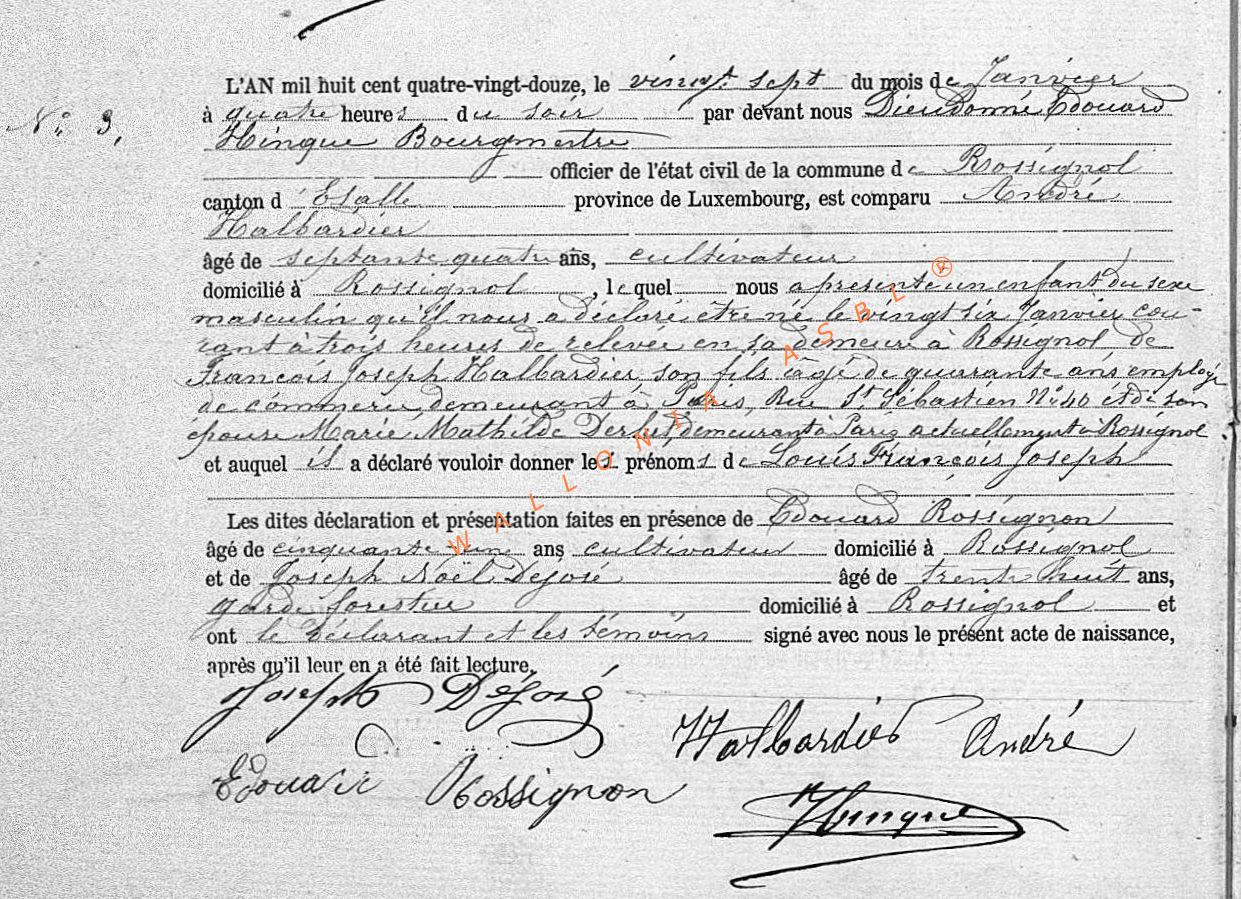 L'AN mil huit cent quatre-vingt-douze, le vingt sept du mois de Janvier
N° 3, à quatre heures du soir par devant nous Dieudonné Edouard
Hinque Bourgmestre
officier de l'état civil de la commune de Rossignol
canton d'Etalle province de Luxembourg, est comparu André
Halbardier
âgé de septante quatre ans, cultivateur
domicilié à Rossignol, lequel nous a présenté un enfant du sexe
masculin qu'il nous a déclaré être né le vingt six Janvier cou-
rant à trois heures de relevée en sa demeure à Rossignol, de
François Joseph Halbardier, son fils âgé de quarante ans employé
de commerce, demeurant à Paris, Rue St Sébastien N° 40 et de son
épouse Marie Mathilde demeurant à Paris actuellement à Rossignol.
et auquel il a déclaré vouloir donner les prénoms de Louis François Joseph
Les dites déclaration et présentation faites en présence de Edouard Rossignon
âgé de cinquante un ans cultivateur domicilié à Rossignol
et de Joseph Noël Déjosé âgé de trente huit ans,
garde forestier domicilié à Rossignol et
ont le déclarant et les témoins signé avec nous le présent acte de naissance,
après qu'il leur en a été fait lecture.
Joseph Déjosé
Halbardier André
Edouard Rossignon
Hinque
WALLONIA ASBL ®